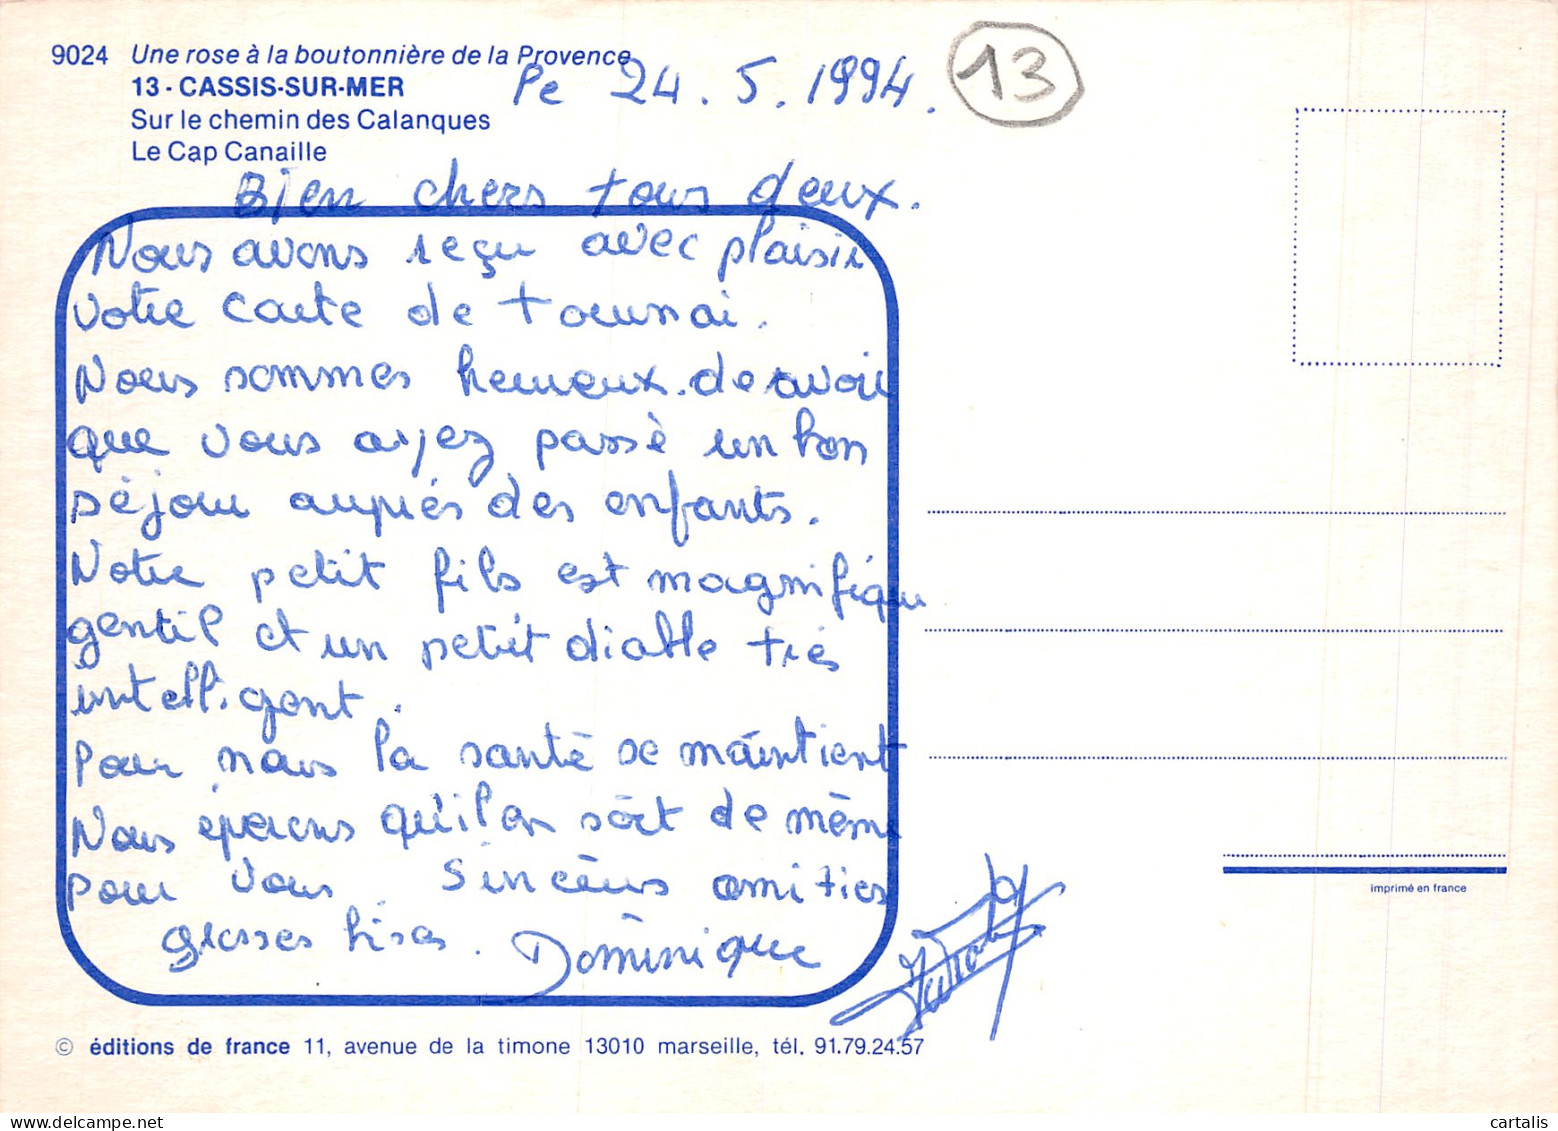 9024 Une rose à la boutonnière de la Provence
13 - CASSIS-SUR-MER
Sur le chemin des Calanques
Le Cap Canaille
le 24.5.1994.
13
Bien chers tous deux.
Nous avons reçu avec plaisir
votre carte de tournai.
Nous sommes heureux de savoir
que vous ayez passè un bon
séjour auprés des enfants.
Notre petit fils est magnifique
gentil et un petit diable très
intelligent.
Pour nous la santè se maintient
Nous éperons qu'il en sort de même
pour vous. Sincères amitiés
grosses bises. Dominique
imprimé en france
© éditions de france 11, avenue de la timone 13010 marseille, tél. 91.79.24.57
cartalis